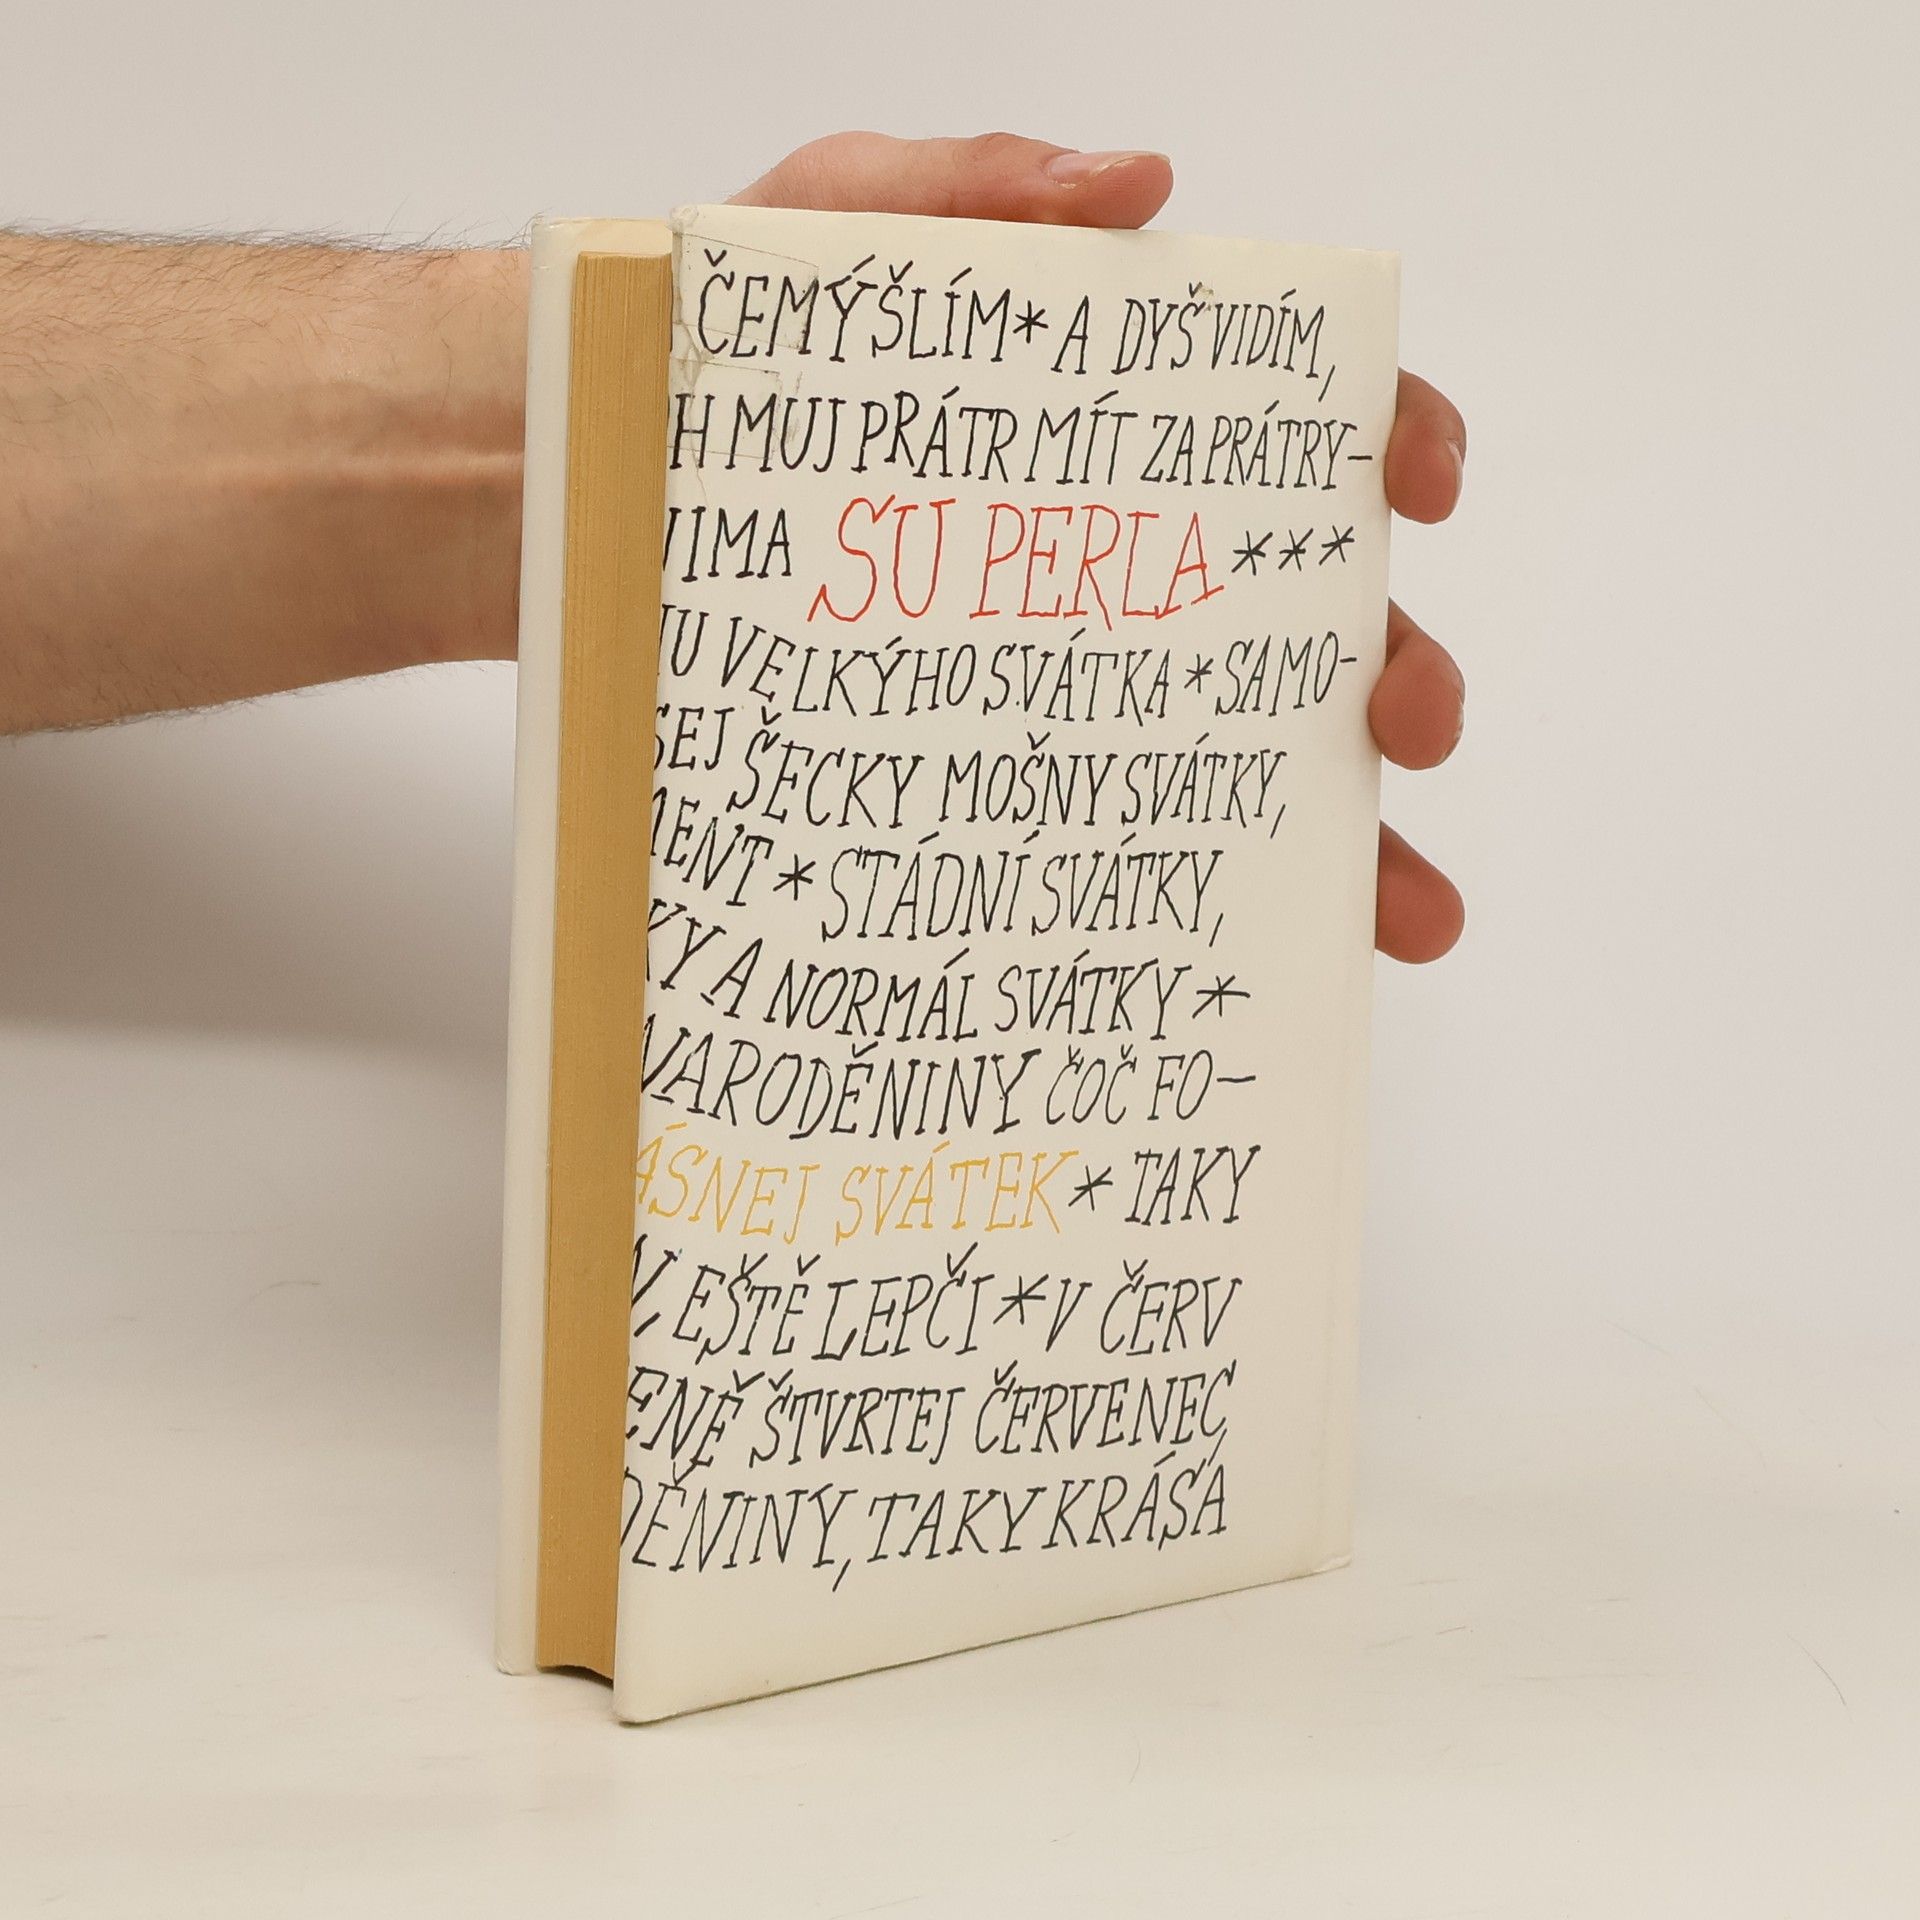 ČEMÝŠLÍM * A DYŠ VIDÍM,
MUJ PRÁTR MÍT ZA PRÁTRY-
SU PERLA ***
VELKÝHO SVÁTKA * SAMO-
ŠECKY MOŠNY SVÁTKY,
* STÁDNÍ SVÁTKY,
A NORMÁL SVÁTKY *
NARODĚNINY ČOČ FO-
ÁSNEJ SVÁTEK * TAKY
EŠTĚ LEPČI * V ČERV
ENĚ ŠTVRTEJ ČERVENEC,
DĚNINY, TAKY KRÁSA